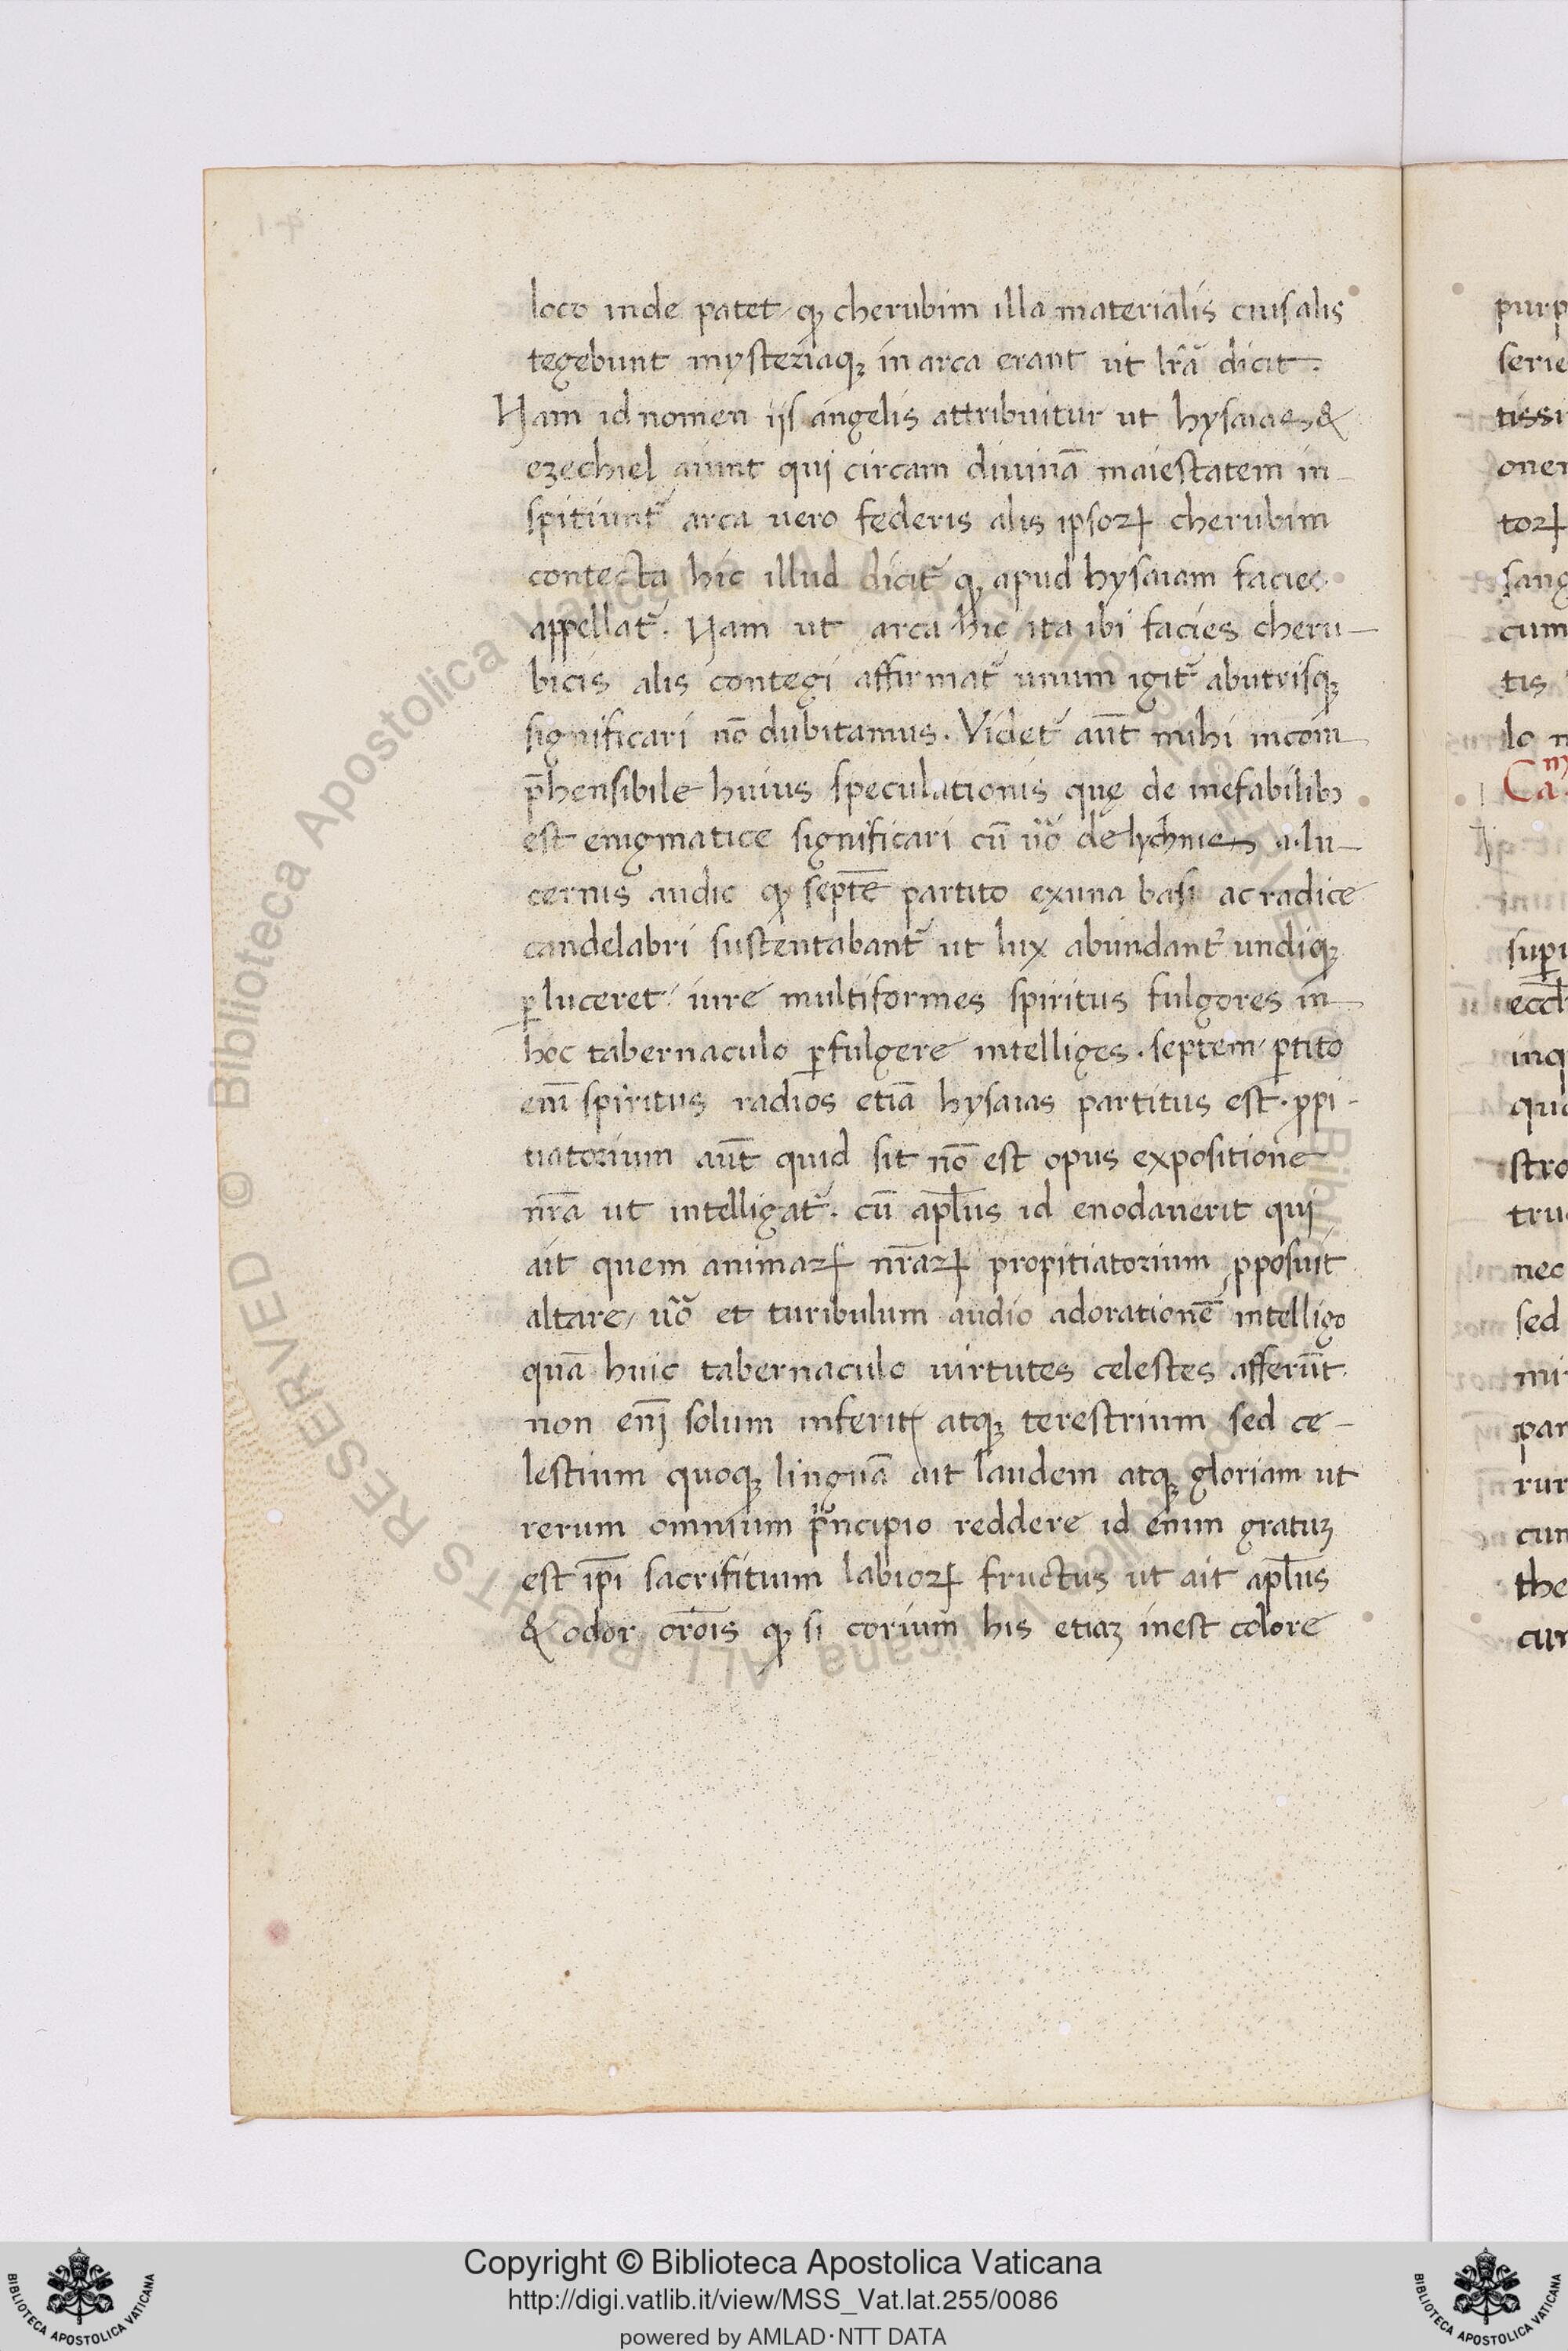 loco inde patet, qꝫ cherubim illa materialis cuiſ alis
tegebunt mysteriaqꝫ in arca erant ut lr̃a dicit.
Nam id nomen ijſ angelis attribuitur ut hysaias &
ezechiel aiunt qui circam diuinā maiestatem in-
spitiunt᷑ arca uero federis alis ipsoꝝ cherubim
contecta hic illud dicit᷑ qꝫ apud hysaiam facies
appellat᷑. Nam ut arca hic ita ibi facies cheru-
bicis alis contegi affirmat᷑ unum igit᷑ ab utrisqꝫ
significari nō dubitamus. Videt᷑ aūt mihi incom-
p̄hensibile huius speculationis quę de inefabilibꝫ
est enigmatice significari cū ũo de lychnies a lu-
cernis audio qꝫ septē partito ex una basi ac radice
candelabri sustentabant᷑ ut lux abundant᷑ undiqꝫ
ꝑluceret iure multiformes spiritus fulgores in-
hoc tabernaculo ꝑfulgere intelliges. septem ꝑtito
eni̅ spiritus radios etiā hysaias partitus est. ꝓpi-
tiatorium aūt quid sit nō est opus expositione
nr̃a ut intelligat᷑. cū apl̃us id enodauerit qui
ait quem animaꝝ nr̃aꝝ propitiatorium ꝓposuit
altare, ũo et turibulum audio adorationē intelligo
quā huic tabernaculo uirtutes celestes afferūt.
non eni̅ solum inferit᷑ atqꝫ terestrium sed ce-
lestium quoqꝫ linguā ait laudem atqꝫ gloriam ut
rerum omnium pͥncipio reddere id enim gratuꝫ
est ip̄i sacrifitium labioꝝ fructus ut ait apl̃us
& odor or̃ois qꝫ si corium his etiaꝫ inest colore
purp
serie
tissi
oner
toꝝ
sang
cum
tis
lo n
Ca
supi
eccl
inq
quo
stro
tru
nec
sed
mi
par
rur
cun
the
cur
Biblioteca Apostolica Vaticana ALL RIGHTS RESERVED ©
Copyright © Biblioteca Apostolica Vaticana
http://digi.vatlib.it/view/MSS_Vat.lat.255/0086
powered by AMLAD·NTT DATA
BIBLIOTECA APOSTOLICA VATICANA
BIBLIOTECA APOSTOLICA VATICANA